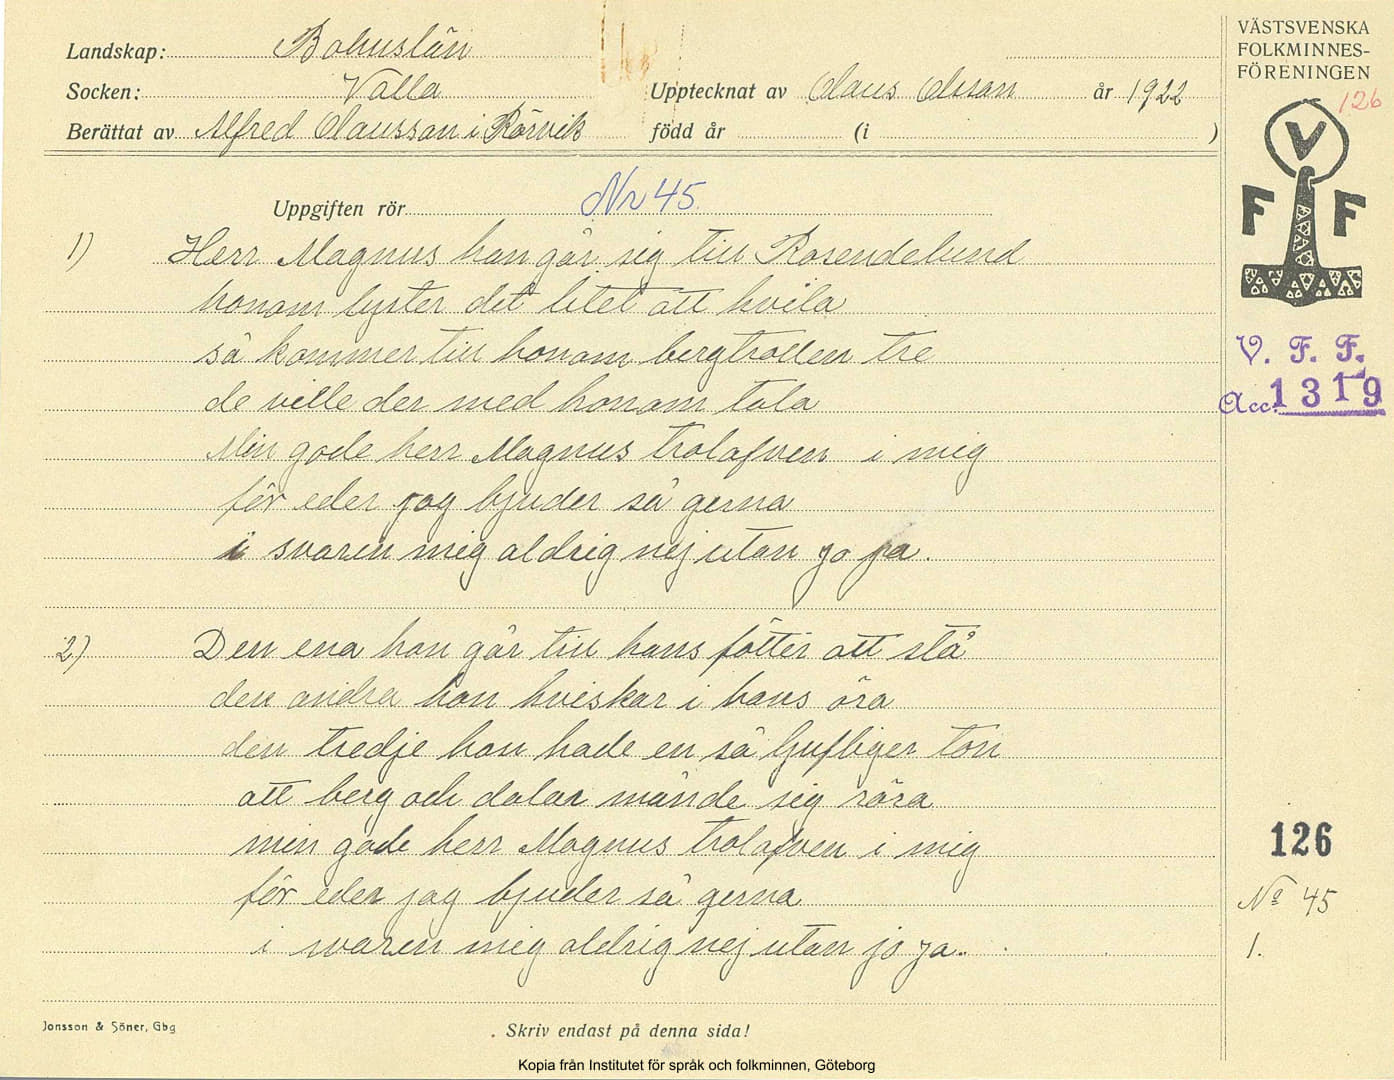 Landskap: Bohuslän
Socken: Valla
Upptecknat av Olaus Olsson år 1922
Berättat av Alfred Olausson i Rörvik
född år (i )
VÄSTSVENSKA
FOLKMINNES-
FÖRENINGEN
126
V
F F
V. F. F.
Acc. 1319
Uppgiften rör Nr 45.
1) Herr Magnus han går sig till Rosendelund
honom lyster det litet att hvila
så kommer till honom bergtrollen tre
de ville der med honom tala
Min gode herr Magnus trolafven i mig
för eder jag bjuder så gerna
i svaren mig aldrig nej utan jo ja.
2) Den ena han går till hans fötter att stå
den andra han hviskar i hans öra
den tredje han hade en så ljufliger ton
att berg och dalar månde sig röra
min gode herr Magnus trolofven i mig
för eder jag bjuder så gerna
i svaren mig aldrig nej utan jo ja.
126
No 45
1.
Jonsson & Söner, Gbg
Skriv endast på denna sida!
Kopia från Institutet för språk och folkminnen, Göteborg